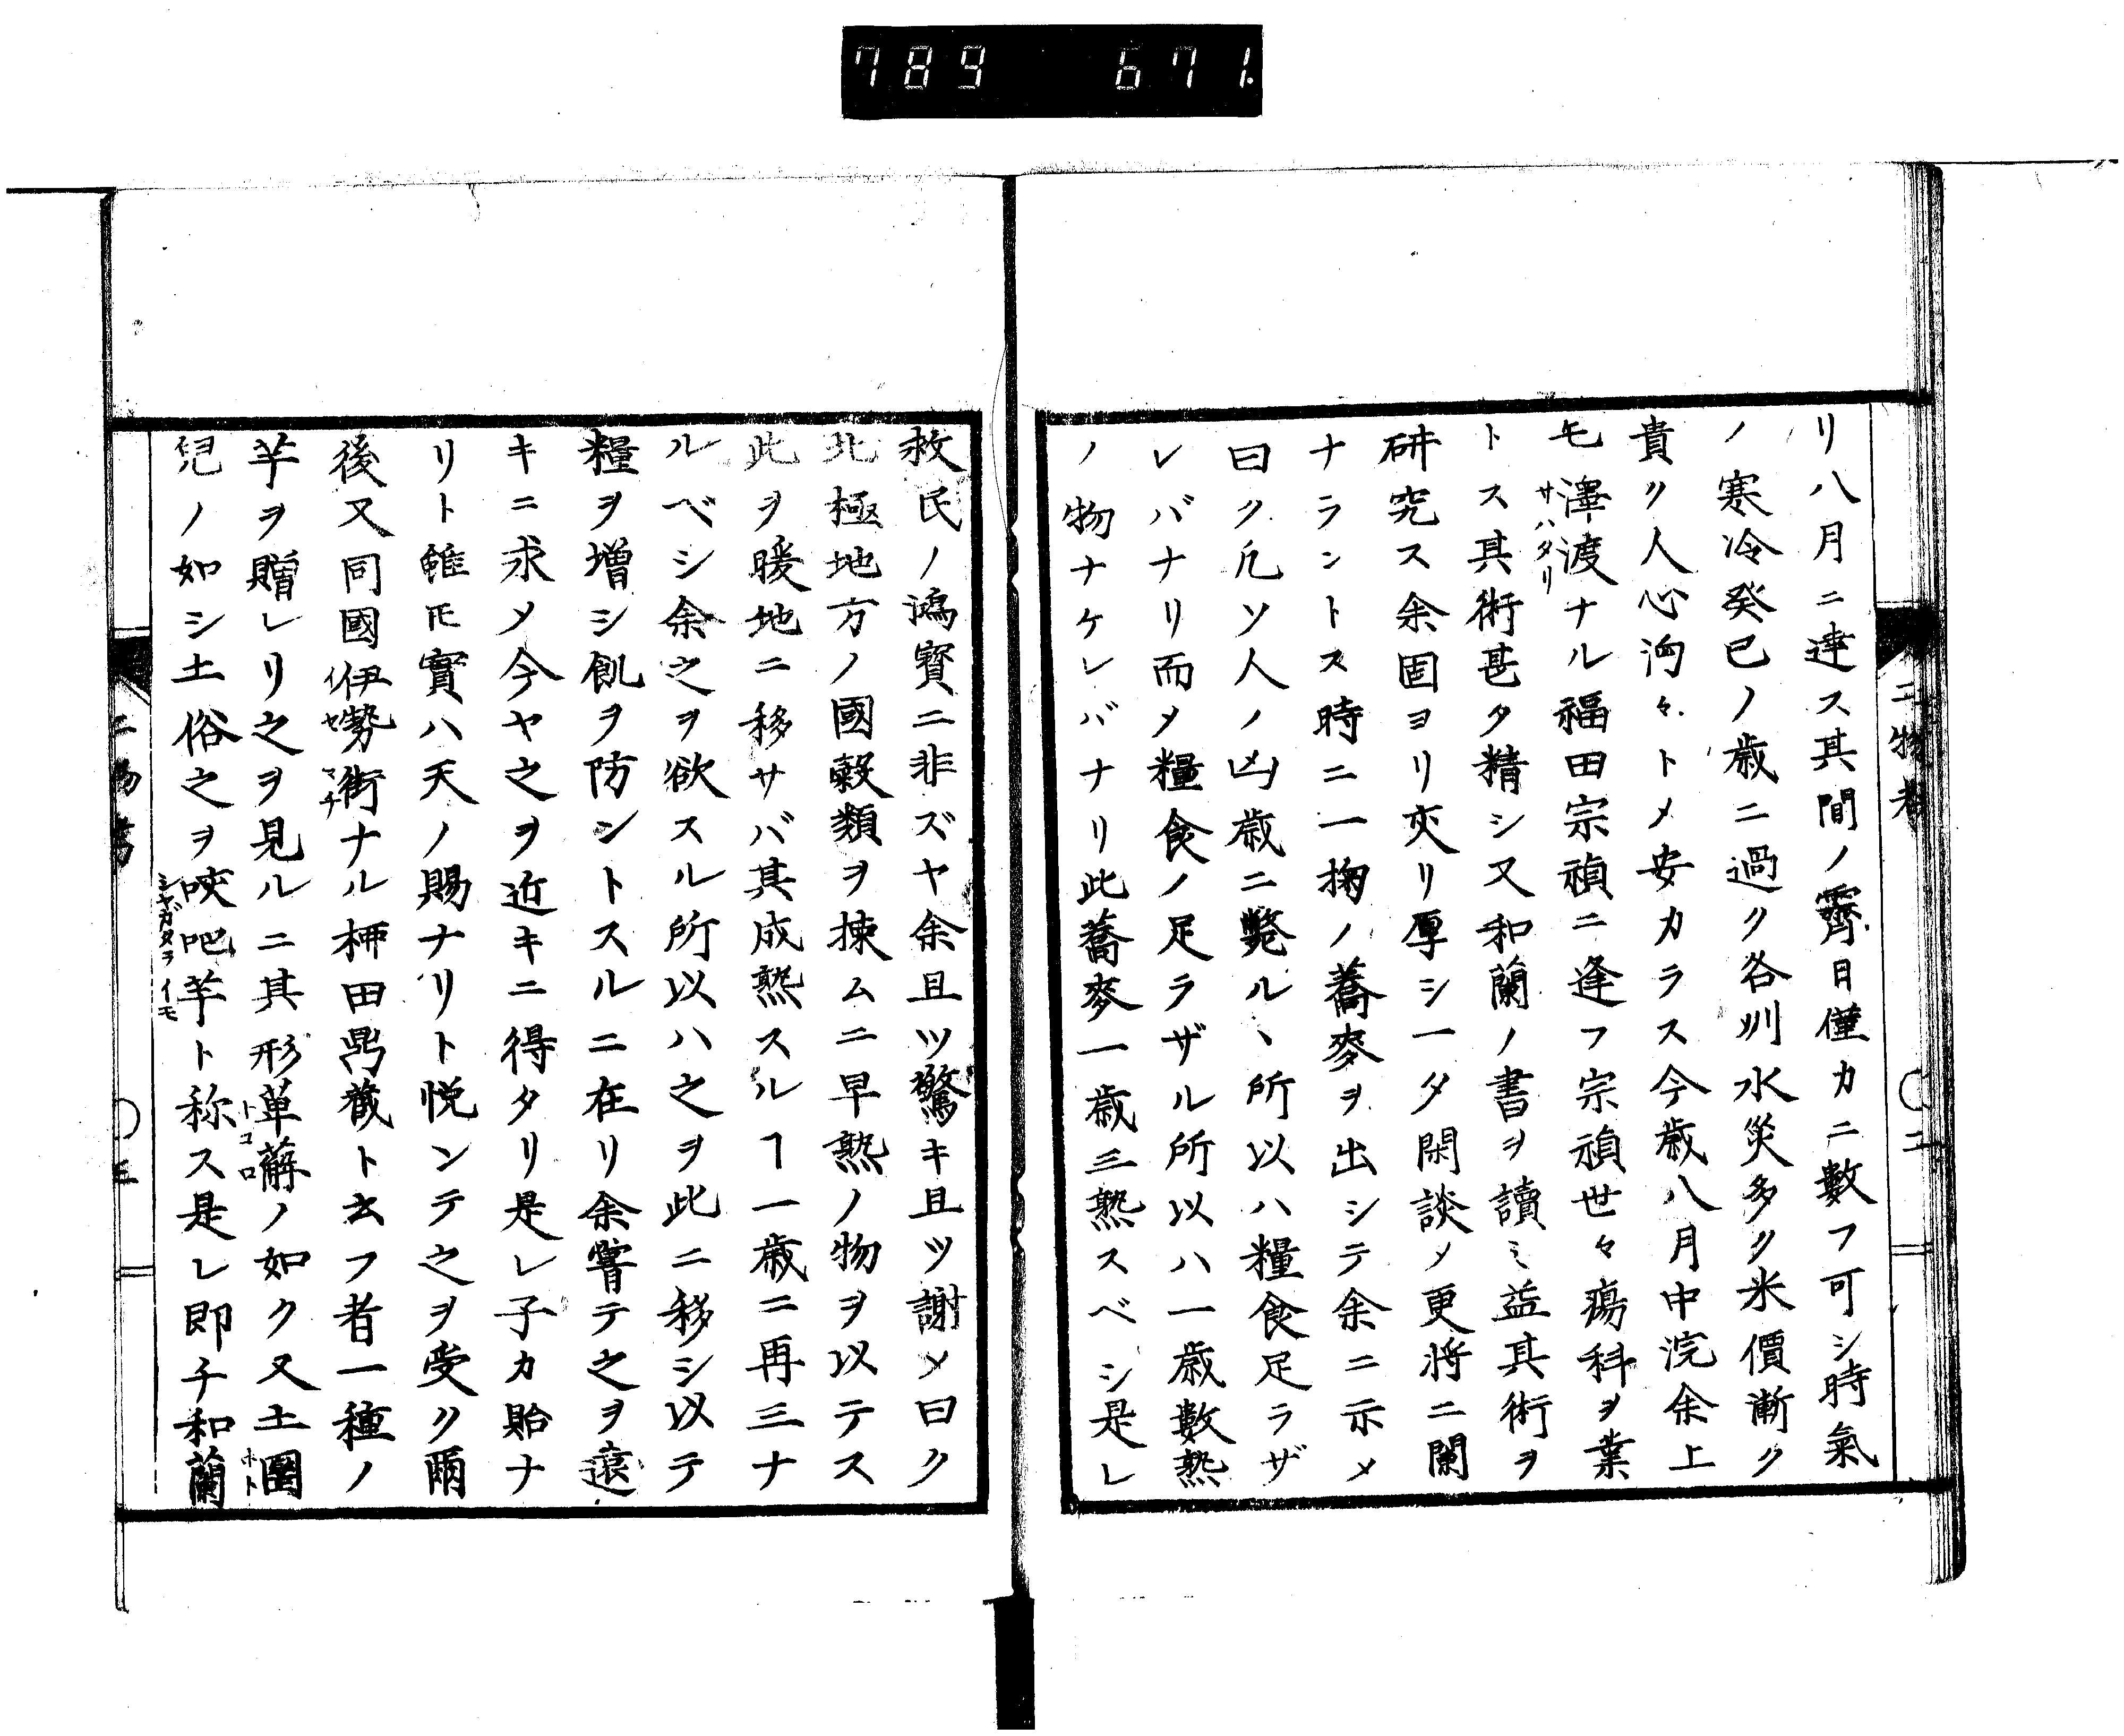 789 671.
二物考
〇二
リ八月ニ達ス其間ノ霽日僅カニ數フ可シ時氣
ノ寒冷癸巳ノ歳ニ過ク各州水災多ク米價漸ク
貴ク人心洶々トメ安カラス今歳八月中浣余上
毛澤渡ナル福田宗禎ニ逢フ宗禎世々瘍科ヲ業
サハタリ
トス其術甚タ精シ又和蘭ノ書ヲ讀ミ益其術ヲ
硏究ス余固ヨリ交リ厚シ一夕閑談メ更將ニ闌
ナラントス時ニ一掬ノ蕎麥ヲ出シテ余ニ示メ
曰ク凡ソ人ノ凶歳ニ斃ルヽ所以ハ糧食足ラザ
レバナリ而メ糧食ノ足ラザル所以ハ一歳數熟
ノ物ナケレバナリ此蕎麥一歳三熟スベシ是レ
救民ノ鴻寶ニ非ズヤ余且ツ驚キ且ツ謝メ曰ク
北極地方ノ國穀類ヲ揀ムニ早熟ノ物ヲ以テス
此ヲ暖地ニ移サバ其成熟スルヿ一歳ニ再三ナ
ルベシ余之ヲ欲スル所以ハ之ヲ此ニ移シ以テ
糧ヲ增シ飢ヲ防ントスルニ在リ余嘗テ之ヲ遠
キニ求メ今ヤ之ヲ近キニ得タリ是レ子カ貽ナ
リト雖𪜈實ハ天ノ賜ナリト悦ンテ之ヲ受ク爾
後又同國伊勢街ナル柹田鼎藏ト云フ者一種ノ
イセマチ
芋ヲ贈レリ之ヲ見ルニ其形萆薢ノ如ク又土圞
トコロ
ホト
兒ノ如シ土俗之ヲ咬吧芋ト称ス是レ即チ和蘭
シヤガタライモ
二物考
〇三